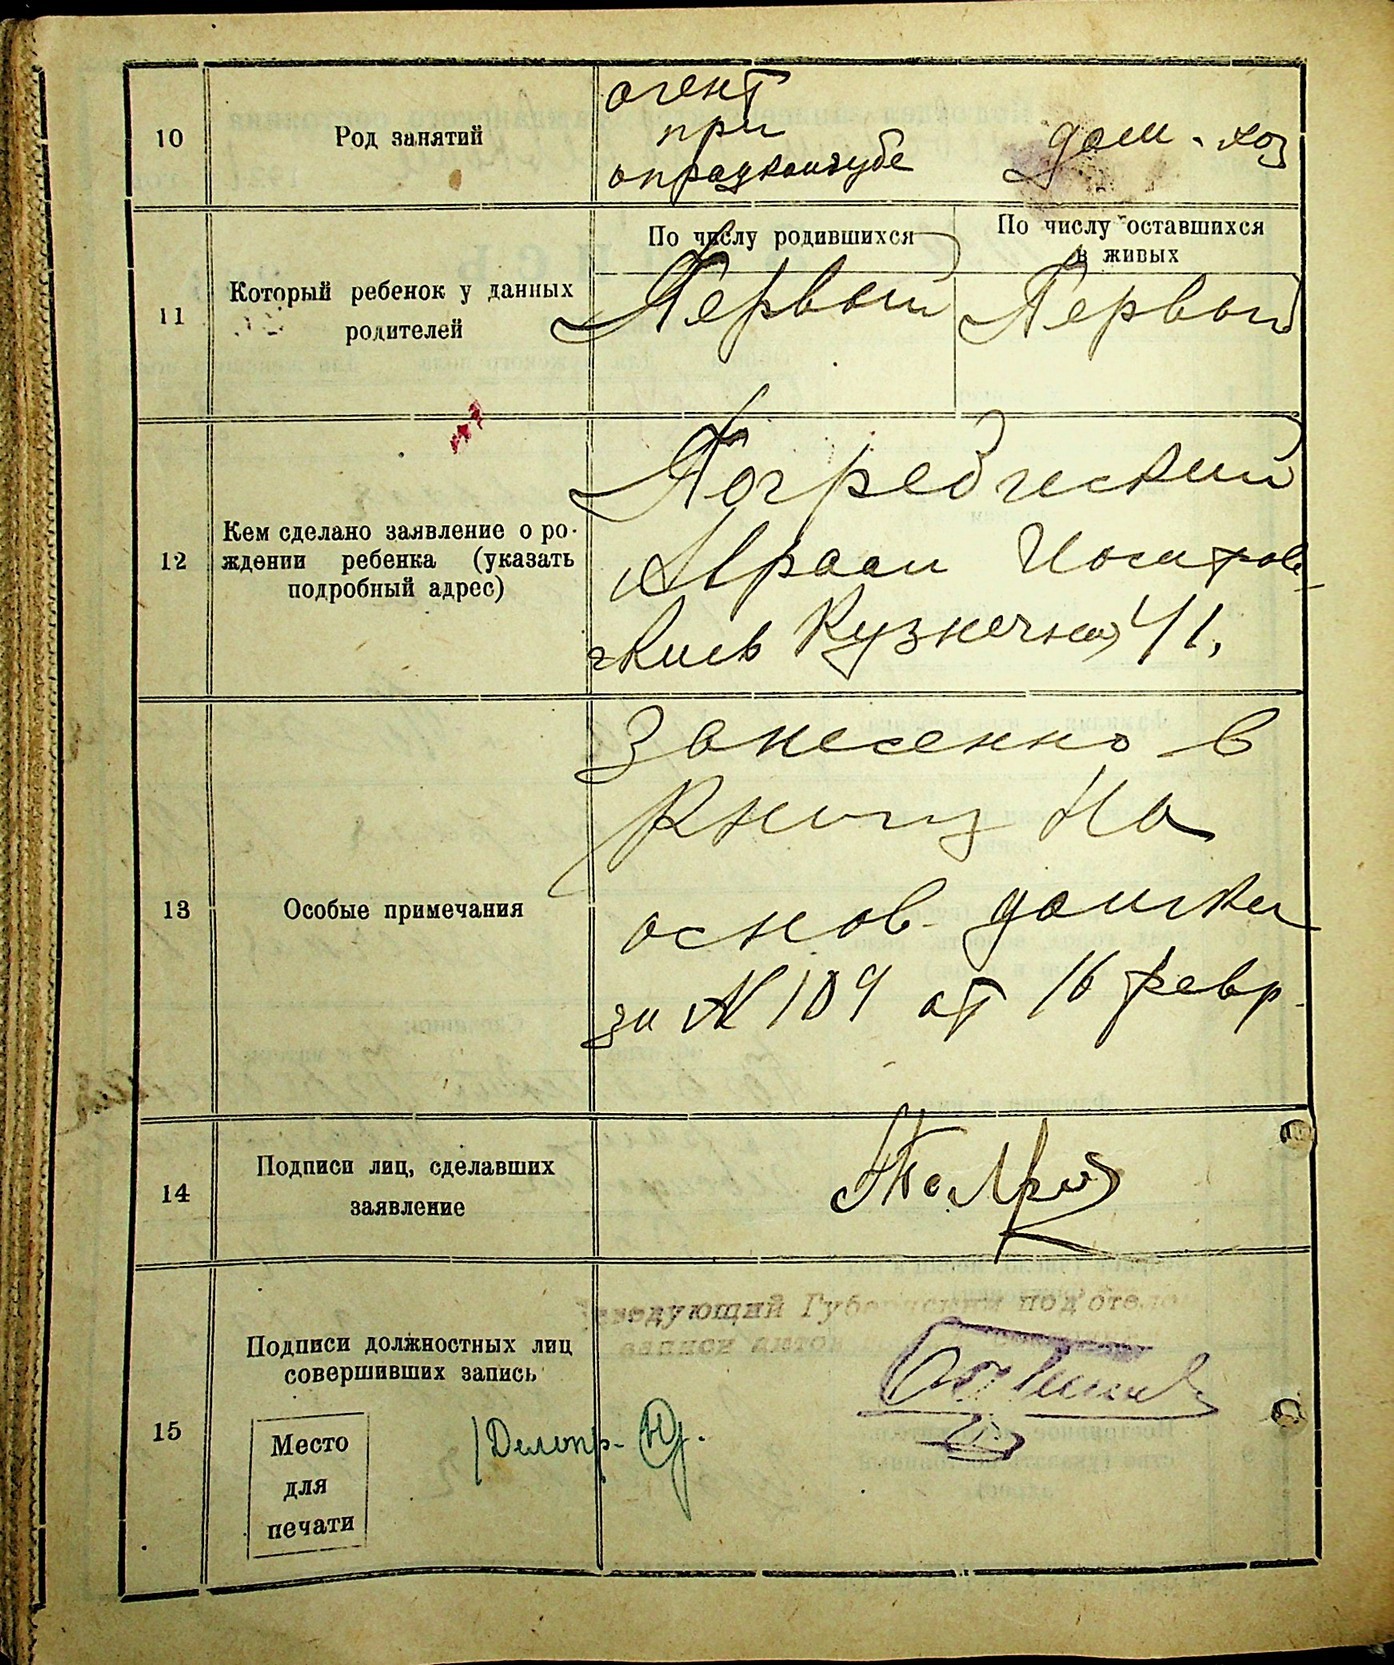 10
Род занятий
агент
при
опродкомгубе
дом. хоз
11
Который ребенок у данных
родителей
По числу родившихся
Первый
По числу оставшихся
в живых
Первый
12
Кем сделано заявление о ро-
ждении ребенка (указать
подробный адрес)
Погребиский
Авраам
Киев Кузнечная 41.
13
Особые примечания
Занесенно в
книгу на
основ.
за № 109 от 16 февр.
14
Подписи лиц, сделавших
заявление
15
Подписи должностных лиц
совершивших запись
Заведующий Губернским под'отделом
записи актов
Место
для
печати
Делопр.